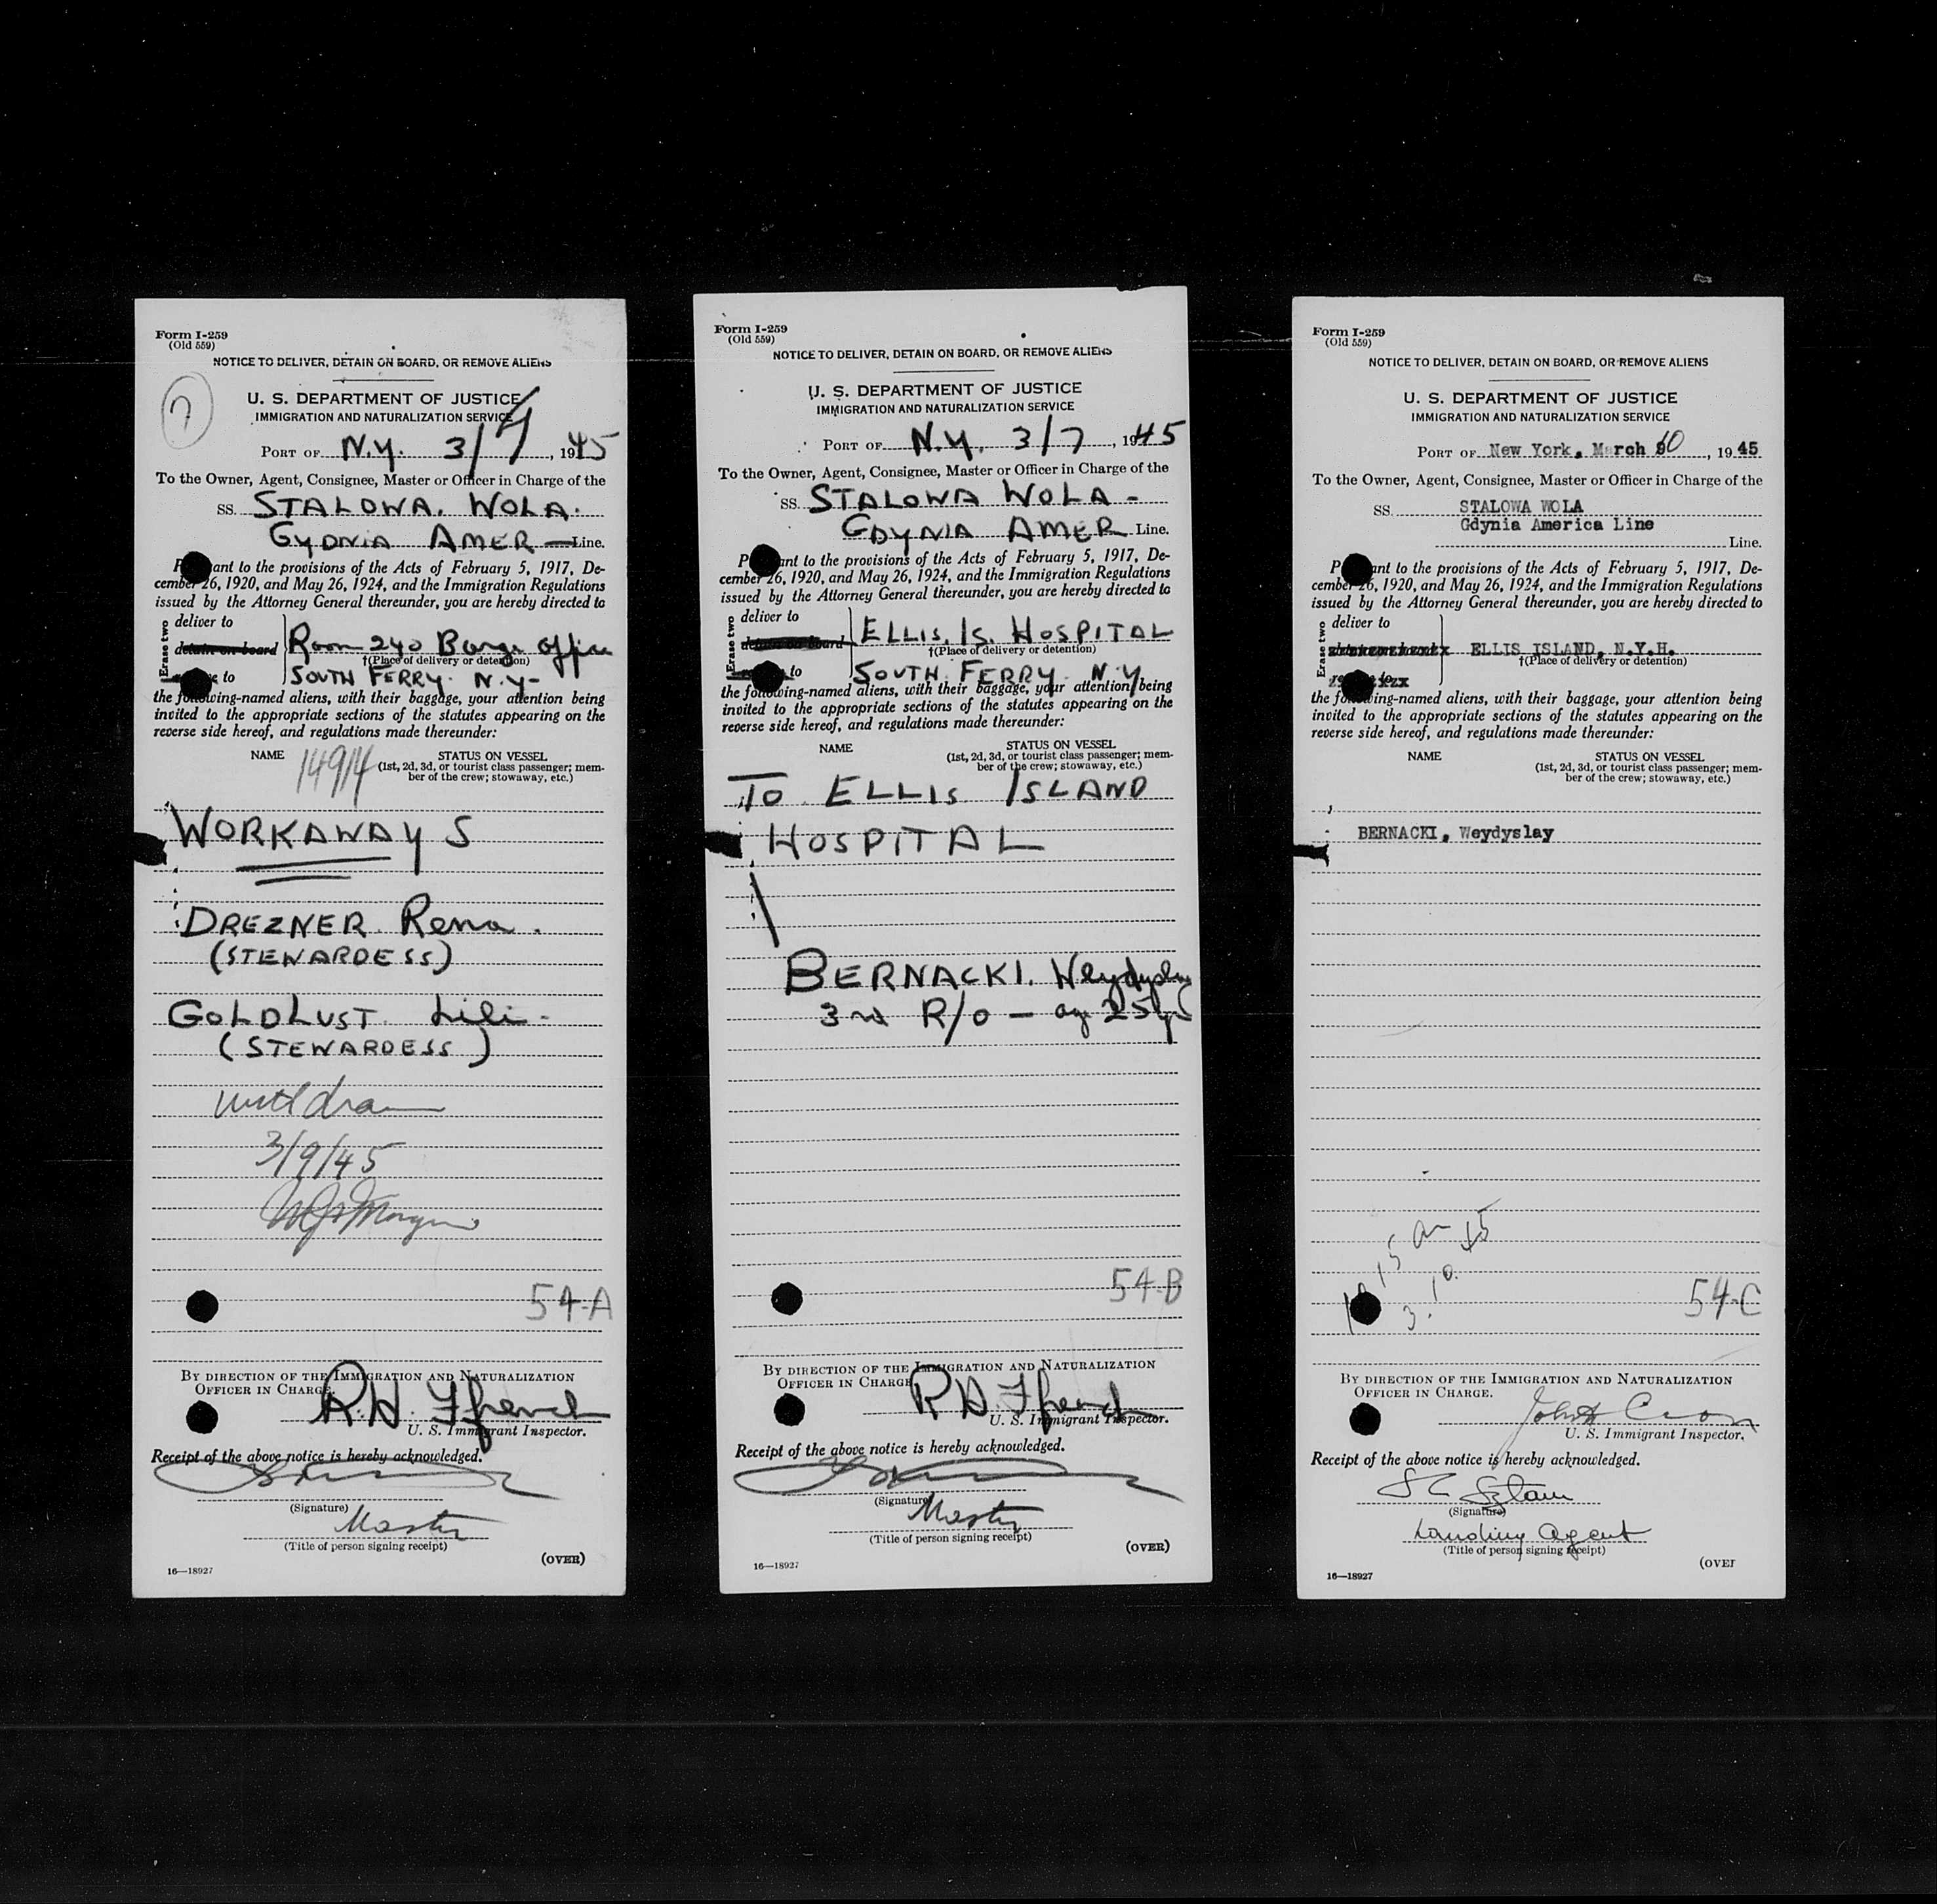 Form I-259
(Old 559)
NOTICE TO DELIVER, DETAIN ON BOARD, OR REMOVE ALIENS
7
U. S. DEPARTMENT OF JUSTICE
IMMIGRATION AND NATURALIZATION SERVICE
PORT OF N.Y. 3/7, 1945
To the Owner, Agent, Consignee, Master or Officer in Charge of the
SS. STALOWA. WOLA.
GYDNIA AMER — Line.
P ant to the provisions of the Acts of February 5, 1917, De-
cember 26, 1920, and May 26, 1924, and the Immigration Regulations
issued by the Attorney General thereunder, you are hereby directed to
Erase two
deliver to
detain on board Room 240 Barge Office
†(Place of delivery or detention)
to SOUTH FERRY. N.Y-
the following-named aliens, with their baggage, your attention being
invited to the appropriate sections of the statutes appearing on the
reverse side hereof, and regulations made thereunder:
NAME 14914 STATUS ON VESSEL
(1st, 2d, 3d, or tourist class passenger; mem-
ber of the crew; stowaway, etc.)
WORKAWAYS
DREZNER Rena.
(STEWARDESS)
GOLDLUST Lili-
(STEWARDESS)
3/9/45
54-A
BY DIRECTION OF THE IMMIGRATION AND NATURALIZATION
OFFICER IN CHARGE.
R.H. Ffrench
U. S. Immigrant Inspector.
Receipt of the above notice is hereby acknowledged.
(Signature)
Master
(Title of person signing receipt)
(OVER)
16—18927
Form I-259
(Old 559)
NOTICE TO DELIVER, DETAIN ON BOARD, OR REMOVE ALIENS
U. S. DEPARTMENT OF JUSTICE
IMMIGRATION AND NATURALIZATION SERVICE
PORT OF N.Y. 3/7, 1945
To the Owner, Agent, Consignee, Master or Officer in Charge of the
SS. STALOWA WOLA -
GDYNIA AMER Line.
P ant to the provisions of the Acts of February 5, 1917, De-
cember 26, 1920, and May 26, 1924, and the Immigration Regulations
issued by the Attorney General thereunder, you are hereby directed to
Erase two
deliver to
detain on board ELLIS. IS. HOSPITAL
†(Place of delivery or detention)
to SOUTH FERRY. N.Y.
the following-named aliens, with their baggage, your attention being
invited to the appropriate sections of the statutes appearing on the
reverse side hereof, and regulations made thereunder:
NAME STATUS ON VESSEL
(1st, 2d, 3d, or tourist class passenger; mem-
ber of the crew; stowaway, etc.)
TO ELLIS ISLAND
HOSPITAL
BERNACKI. Weydyslay
3rd R/O — age 25 yrs
54-B
BY DIRECTION OF THE IMMIGRATION AND NATURALIZATION
OFFICER IN CHARGE
R.H. Ffrench
U. S. Immigrant Inspector.
Receipt of the above notice is hereby acknowledged.
(Signature)
Master
(Title of person signing receipt)
(OVER)
16—18927
Form I-259
(Old 559)
NOTICE TO DELIVER, DETAIN ON BOARD, OR REMOVE ALIENS
U. S. DEPARTMENT OF JUSTICE
IMMIGRATION AND NATURALIZATION SERVICE
PORT OF New York, March 10, 1945
To the Owner, Agent, Consignee, Master or Officer in Charge of the
SS. STALOWA WOLA
Gdynia America Line
Line.
P ant to the provisions of the Acts of February 5, 1917, De-
cember 26, 1920, and May 26, 1924, and the Immigration Regulations
issued by the Attorney General thereunder, you are hereby directed to
Erase two
deliver to
ELLIS ISLAND, N.Y.H.
†(Place of delivery or detention)
the following-named aliens, with their baggage, your attention being
invited to the appropriate sections of the statutes appearing on the
reverse side hereof, and regulations made thereunder:
NAME STATUS ON VESSEL
(1st, 2d, 3d, or tourist class passenger; mem-
ber of the crew; stowaway, etc.)
BERNACKI, Weydyslay
15 am
3. 10. 45
54-C
BY DIRECTION OF THE IMMIGRATION AND NATURALIZATION
OFFICER IN CHARGE.
U. S. Immigrant Inspector.
Receipt of the above notice is hereby acknowledged.
(Signature)
Landing Agent
(Title of person signing receipt)
(OVER
16—18927